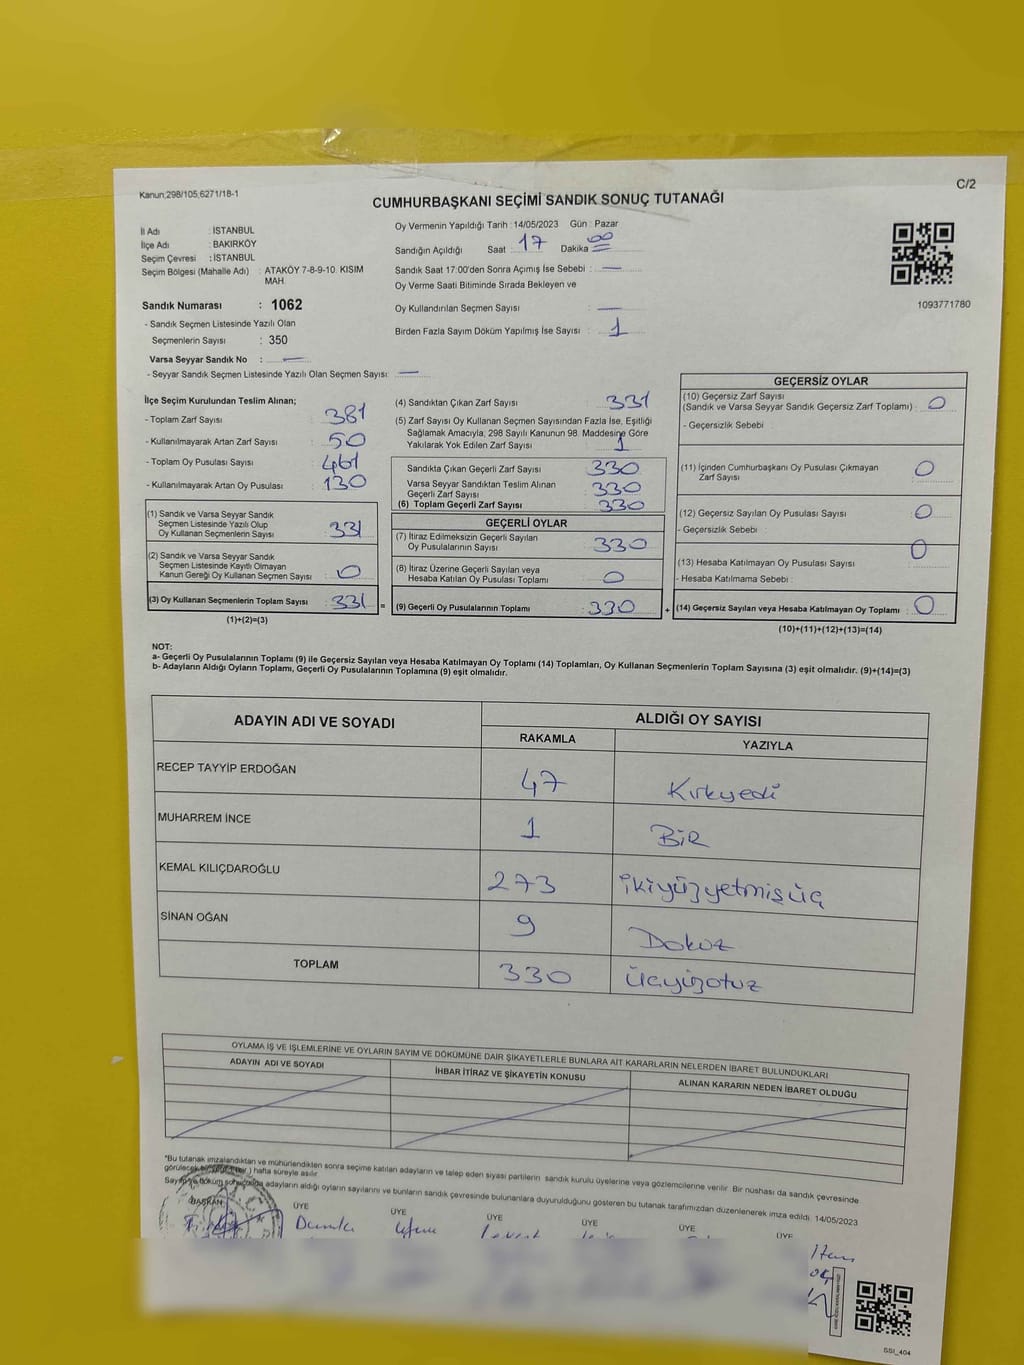 Kanun;298/105,6271/18-1
C/2
CUMHURBAŞKANI SEÇİMİ SANDIK SONUÇ TUTANAĞI
İl Adı : İSTANBUL
İlçe Adı : BAKIRKÖY
Seçim Çevresi : İSTANBUL
Seçim Bölgesi (Mahalle Adı) : ATAKÖY 7-8-9-10. KISIM
MAH.
Sandık Numarası : 1062
- Sandık Seçmen Listesinde Yazılı Olan
Seçmenlerin Sayısı : 350
Varsa Seyyar Sandık No : —
- Seyyar Sandık Seçmen Listesinde Yazılı Olan Seçmen Sayısı: —
Oy Vermenin Yapıldığı Tarih : 14/05/2023 Gün : Pazar
Sandığın Açıldığı Saat : 17 Dakika : 00
Sandık Saat 17:00'den Sonra Açımış İse Sebebi : —
Oy Verme Saati Bitiminde Sırada Bekleyen ve
Oy Kullandırılan Seçmen Sayısı : —
Birden Fazla Sayım Döküm Yapılmış İse Sayısı : 1
1093771780
İlçe Seçim Kurulundan Teslim Alınan;
- Toplam Zarf Sayısı : 381
- Kullanılmayarak Artan Zarf Sayısı : 50
- Toplam Oy Pusulası Sayısı : 461
- Kullanılmayarak Artan Oy Pusulası : 130
(1) Sandık ve Varsa Seyyar Sandık
Seçmen Listesinde Yazılı Olup
Oy Kullanan Seçmenlerin Sayısı : 331
(2) Sandık ve Varsa Seyyar Sandık
Seçmen Listesinde Kayıtlı Olmayan
Kanun Gereği Oy Kullanan Seçmen Sayısı : 0
(3) Oy Kullanan Seçmenlerin Toplam Sayısı : 331 =
(1)+(2)=(3)
(4) Sandıktan Çıkan Zarf Sayısı : 331
(5) Zarf Sayısı Oy Kullanan Seçmen Sayısından Fazla İse, Eşitliği
Sağlamak Amacıyla, 298 Sayılı Kanunun 98. Maddesine Göre
Yakılarak Yok Edilen Zarf Sayısı : 1
Sandıkta Çıkan Geçerli Zarf Sayısı : 330
Varsa Seyyar Sandıktan Teslim Alınan
Geçerli Zarf Sayısı : 330
(6) Toplam Geçerli Zarf Sayısı : 330
GEÇERLİ OYLAR
(7) İtiraz Edilmeksizin Geçerli Sayılan
Oy Pusulalarının Sayısı : 330
(8) İtiraz Üzerine Geçerli Sayılan veya
Hesaba Katılan Oy Pusulası Toplamı : 0
(9) Geçerli Oy Pusulalarının Toplamı : 330 +
GEÇERSİZ OYLAR
(10) Geçersiz Zarf Sayısı
(Sandık ve Varsa Seyyar Sandık Geçersiz Zarf Toplamı) : 0
- Geçersizlik Sebebi :
(11) İçinden Cumhurbaşkanı Oy Pusulası Çıkmayan
Zarf Sayısı : 0
(12) Geçersiz Sayılan Oy Pusulası Sayısı : 0
- Geçersizlik Sebebi :
(13) Hesaba Katılmayan Oy Pusulası Sayısı : 0
- Hesaba Katılmama Sebebi :
(14) Geçersiz Sayılan veya Hesaba Katılmayan Oy Toplamı : 0
(10)+(11)+(12)+(13)=(14)
NOT:
a- Geçerli Oy Pusulalarının Toplamı (9) ile Geçersiz Sayılan veya Hesaba Katılmayan Oy Toplamı (14) Toplamları, Oy Kullanan Seçmenlerin Toplam Sayısına (3) eşit olmalıdır. (9)+(14)=(3)
b- Adayların Aldığı Oyların Toplamı, Geçerli Oy Pusulalarının Toplamına (9) eşit olmalıdır.
ADAYIN ADI VE SOYADI ALDIĞI OY SAYISI
RAKAMLA YAZIYLA
RECEP TAYYİP ERDOĞAN 47 Kırkyedi
MUHARREM İNCE 1 BİR
KEMAL KILIÇDAROĞLU 273 ikiyüzyetmişüç
SİNAN OĞAN 9 Dokuz
TOPLAM 330 üçyüzotuz
OYLAMA İŞ VE İŞLEMLERİNE VE OYLARIN SAYIM VE DÖKÜMÜNE DAİR ŞİKAYETLERLE BUNLARA AİT KARARLARIN NELERDEN İBARET BULUNDUKLARI
ADAYIN ADI VE SOYADI İHBAR İTİRAZ VE ŞİKAYETİN KONUSU ALINAN KARARIN NEDEN İBARET OLDUĞU
"Bu tutanak imzalandıktan ve mühürlendikten sonra seçime katılan adayların ve talep eden siyasi partilerin sandık kurulu üyelerine veya gözlemcilerine verilir. Bir nüshası da sandık çevresinde
görülecek bir ) hafta süreyle asılır.
Sayım ve döküm adayların aldığı oyların sayılarını ve bunların sandık çevresinde bulunanlara duyurulduğunu gösteren bu tutanak tarafımızdan düzenlenerek imza edildi. 14/05/2023
BAŞKAN ÜYE ÜYE ÜYE ÜYE ÜYE ÜYE
SSİ_404